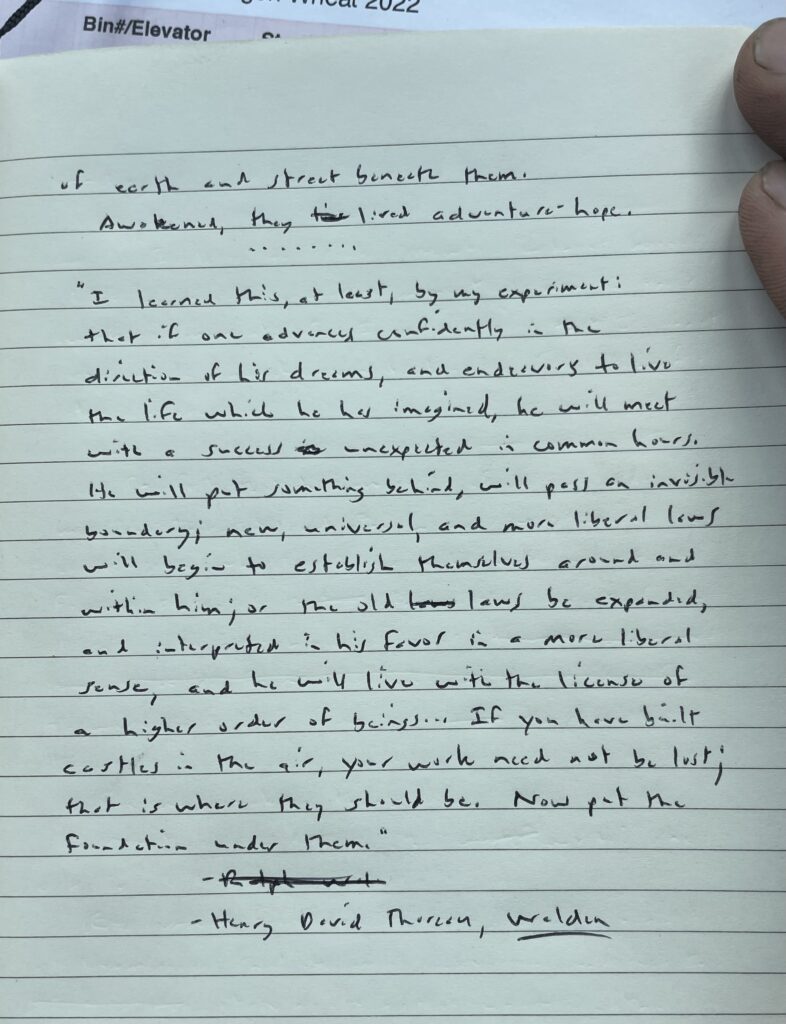 Wheat 2022
Bin#/Elevator
of earth and street beneath them.
Awakened, they lived adventure-hope.
........
"I learned this, at least, by my experiment:
that if one advances confidently in the
direction of his dreams, and endeavors to live
the life which he has imagined, he will meet
with a success unexpected in common hours.
He will put something behind, will pass an invisible
boundary; new, universal, and more liberal laws
will begin to establish themselves around and
within him; or the old laws be expanded,
and interpreted in his favor in a more liberal
sense, and he will live with the license of
a higher order of beings... If you have built
castles in the air, your work need not be lost;
that is where they should be. Now put the
foundation under them."
- Ralph
- Henry David Thoreau, Walden